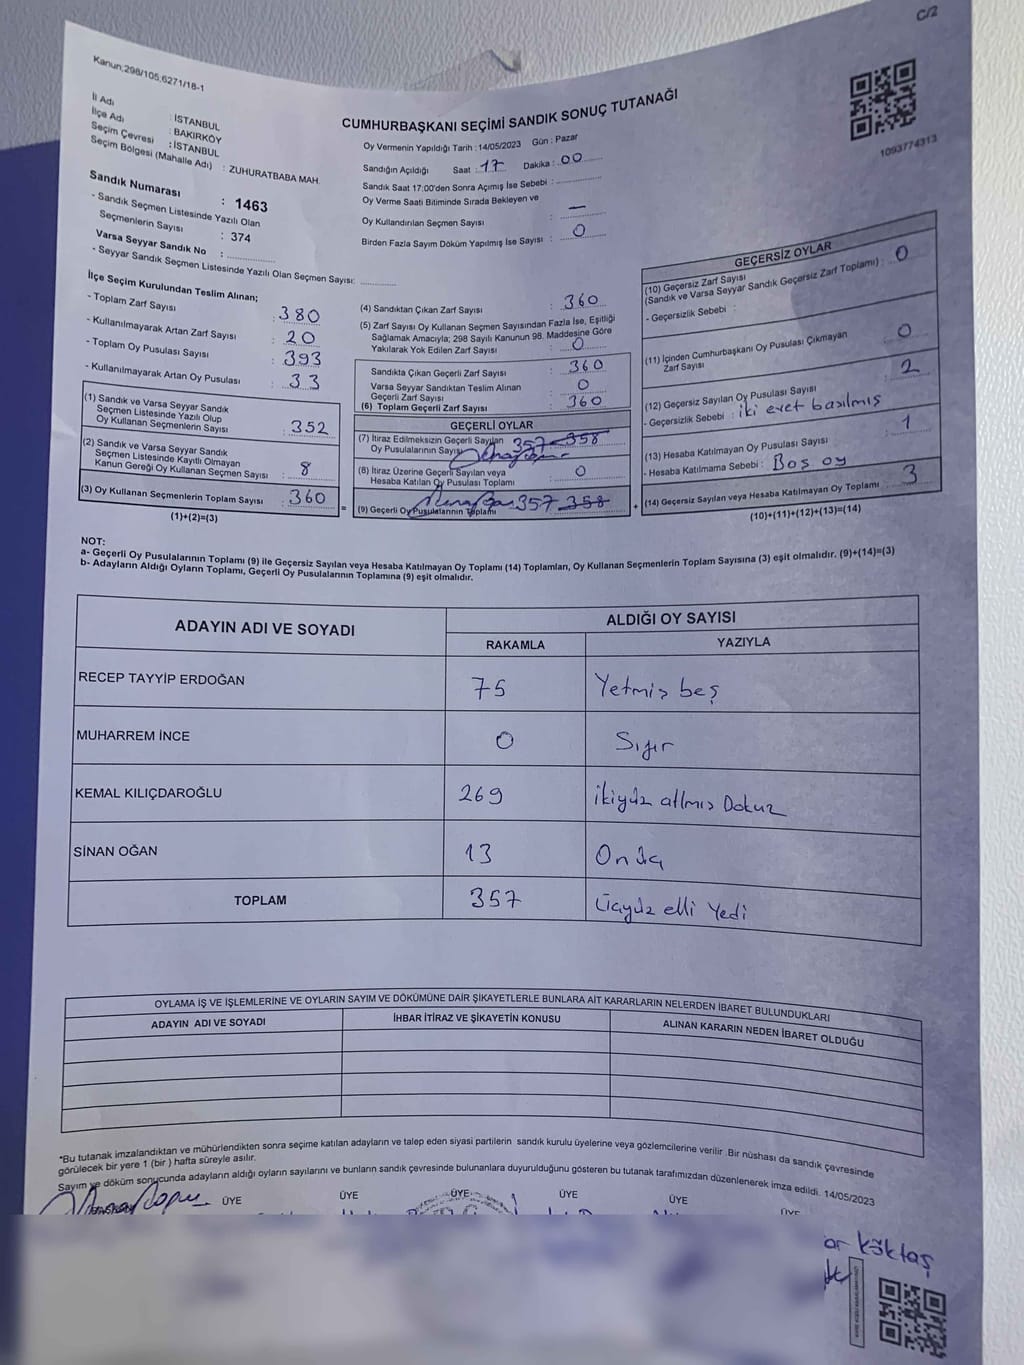 C/2
Kanun;298/105,6271/18-1
İl Adı : İSTANBUL
İlçe Adı : BAKIRKÖY
Seçim Çevresi : İSTANBUL
Seçim Bölgesi (Mahalle Adı) : ZUHURATBABA MAH.
Sandık Numarası : 1463
- Sandık Seçmen Listesinde Yazılı Olan
Seçmenlerin Sayısı : 374
Varsa Seyyar Sandık No :
- Seyyar Sandık Seçmen Listesinde Yazılı Olan Seçmen Sayısı:
CUMHURBAŞKANI SEÇİMİ SANDIK SONUÇ TUTANAĞI
Oy Vermenin Yapıldığı Tarih : 14/05/2023 Gün : Pazar
Sandığın Açıldığı Saat : 17 Dakika : 00
Sandık Saat 17:00'den Sonra Açımış İse Sebebi :
Oy Verme Saati Bitiminde Sırada Bekleyen ve
Oy Kullandırılan Seçmen Sayısı : —
Birden Fazla Sayım Döküm Yapılmış İse Sayısı : 0
1093774313
İlçe Seçim Kurulundan Teslim Alınan;
- Toplam Zarf Sayısı : 380
- Kullanılmayarak Artan Zarf Sayısı : 20
- Toplam Oy Pusulası Sayısı : 393
- Kullanılmayarak Artan Oy Pusulası : 33
(1) Sandık ve Varsa Seyyar Sandık
Seçmen Listesinde Yazılı Olup
Oy Kullanan Seçmenlerin Sayısı : 352
(2) Sandık ve Varsa Seyyar Sandık
Seçmen Listesinde Kayıtlı Olmayan
Kanun Gereği Oy Kullanan Seçmen Sayısı : 8
(3) Oy Kullanan Seçmenlerin Toplam Sayısı : 360
(1)+(2)=(3)
(4) Sandıktan Çıkan Zarf Sayısı : 360
(5) Zarf Sayısı Oy Kullanan Seçmen Sayısından Fazla İse, Eşitliği
Sağlamak Amacıyla; 298 Sayılı Kanunun 98. Maddesine Göre
Yakılarak Yok Edilen Zarf Sayısı : 0
Sandıkta Çıkan Geçerli Zarf Sayısı : 360
Varsa Seyyar Sandıktan Teslim Alınan
Geçerli Zarf Sayısı : 0
(6) Toplam Geçerli Zarf Sayısı : 360
GEÇERLİ OYLAR
(7) İtiraz Edilmeksizin Geçerli Sayılan
Oy Pusulalarının Sayısı 357 358
(8) İtiraz Üzerine Geçerli Sayılan veya
Hesaba Katılan Oy Pusulası Toplamı : 0
(9) Geçerli Oy Pusulalarının Toplamı 357 358
=
+
GEÇERSİZ OYLAR
(10) Geçersiz Zarf Sayısı
(Sandık ve Varsa Seyyar Sandık Geçersiz Zarf Toplamı) : 0
- Geçersizlik Sebebi :
(11) İçinden Cumhurbaşkanı Oy Pusulası Çıkmayan
Zarf Sayısı : 0
(12) Geçersiz Sayılan Oy Pusulası Sayısı : 2
- Geçersizlik Sebebi : iki evet basılmış
(13) Hesaba Katılmayan Oy Pusulası Sayısı : 1
- Hesaba Katılmama Sebebi : Boş oy
(14) Geçersiz Sayılan veya Hesaba Katılmayan Oy Toplamı : 3
(10)+(11)+(12)+(13)=(14)
NOT:
a- Geçerli Oy Pusulalarının Toplamı (9) ile Geçersiz Sayılan veya Hesaba Katılmayan Oy Toplamı (14) Toplamları, Oy Kullanan Seçmenlerin Toplam Sayısına (3) eşit olmalıdır. (9)+(14)=(3)
b- Adayların Aldığı Oyların Toplamı, Geçerli Oy Pusulalarının Toplamına (9) eşit olmalıdır.
ADAYIN ADI VE SOYADI
ALDIĞI OY SAYISI
RAKAMLA YAZIYLA
RECEP TAYYİP ERDOĞAN 75 Yetmiş beş
MUHARREM İNCE 0 Sıfır
KEMAL KILIÇDAROĞLU 269 ikiyüz atlmış Dokuz
SİNAN OĞAN 13 Onüç
TOPLAM 357 Üçyüz elli Yedi
OYLAMA İŞ VE İŞLEMLERİNE VE OYLARIN SAYIM VE DÖKÜMÜNE DAİR ŞİKAYETLERLE BUNLARA AİT KARARLARIN NELERDEN İBARET BULUNDUKLARI
ADAYIN ADI VE SOYADI İHBAR İTİRAZ VE ŞİKAYETİN KONUSU ALINAN KARARIN NEDEN İBARET OLDUĞU
*Bu tutanak imzalandıktan ve mühürlendikten sonra seçime katılan adayların ve talep eden siyasi partilerin sandık kurulu üyelerine veya gözlemcilerine verilir .Bir nüshası da sandık çevresinde
görülecek bir yere 1 (bir ) hafta süreyle asılır.
Sayım ve döküm sonucunda adayların aldığı oyların sayılarını ve bunların sandık çevresinde bulunanlara duyurulduğunu gösteren bu tutanak tarafımızdan düzenlenerek imza edildi. 14/05/2023
ÜYE ÜYE ÜYE ÜYE ÜYE ÜYE
Köktaş